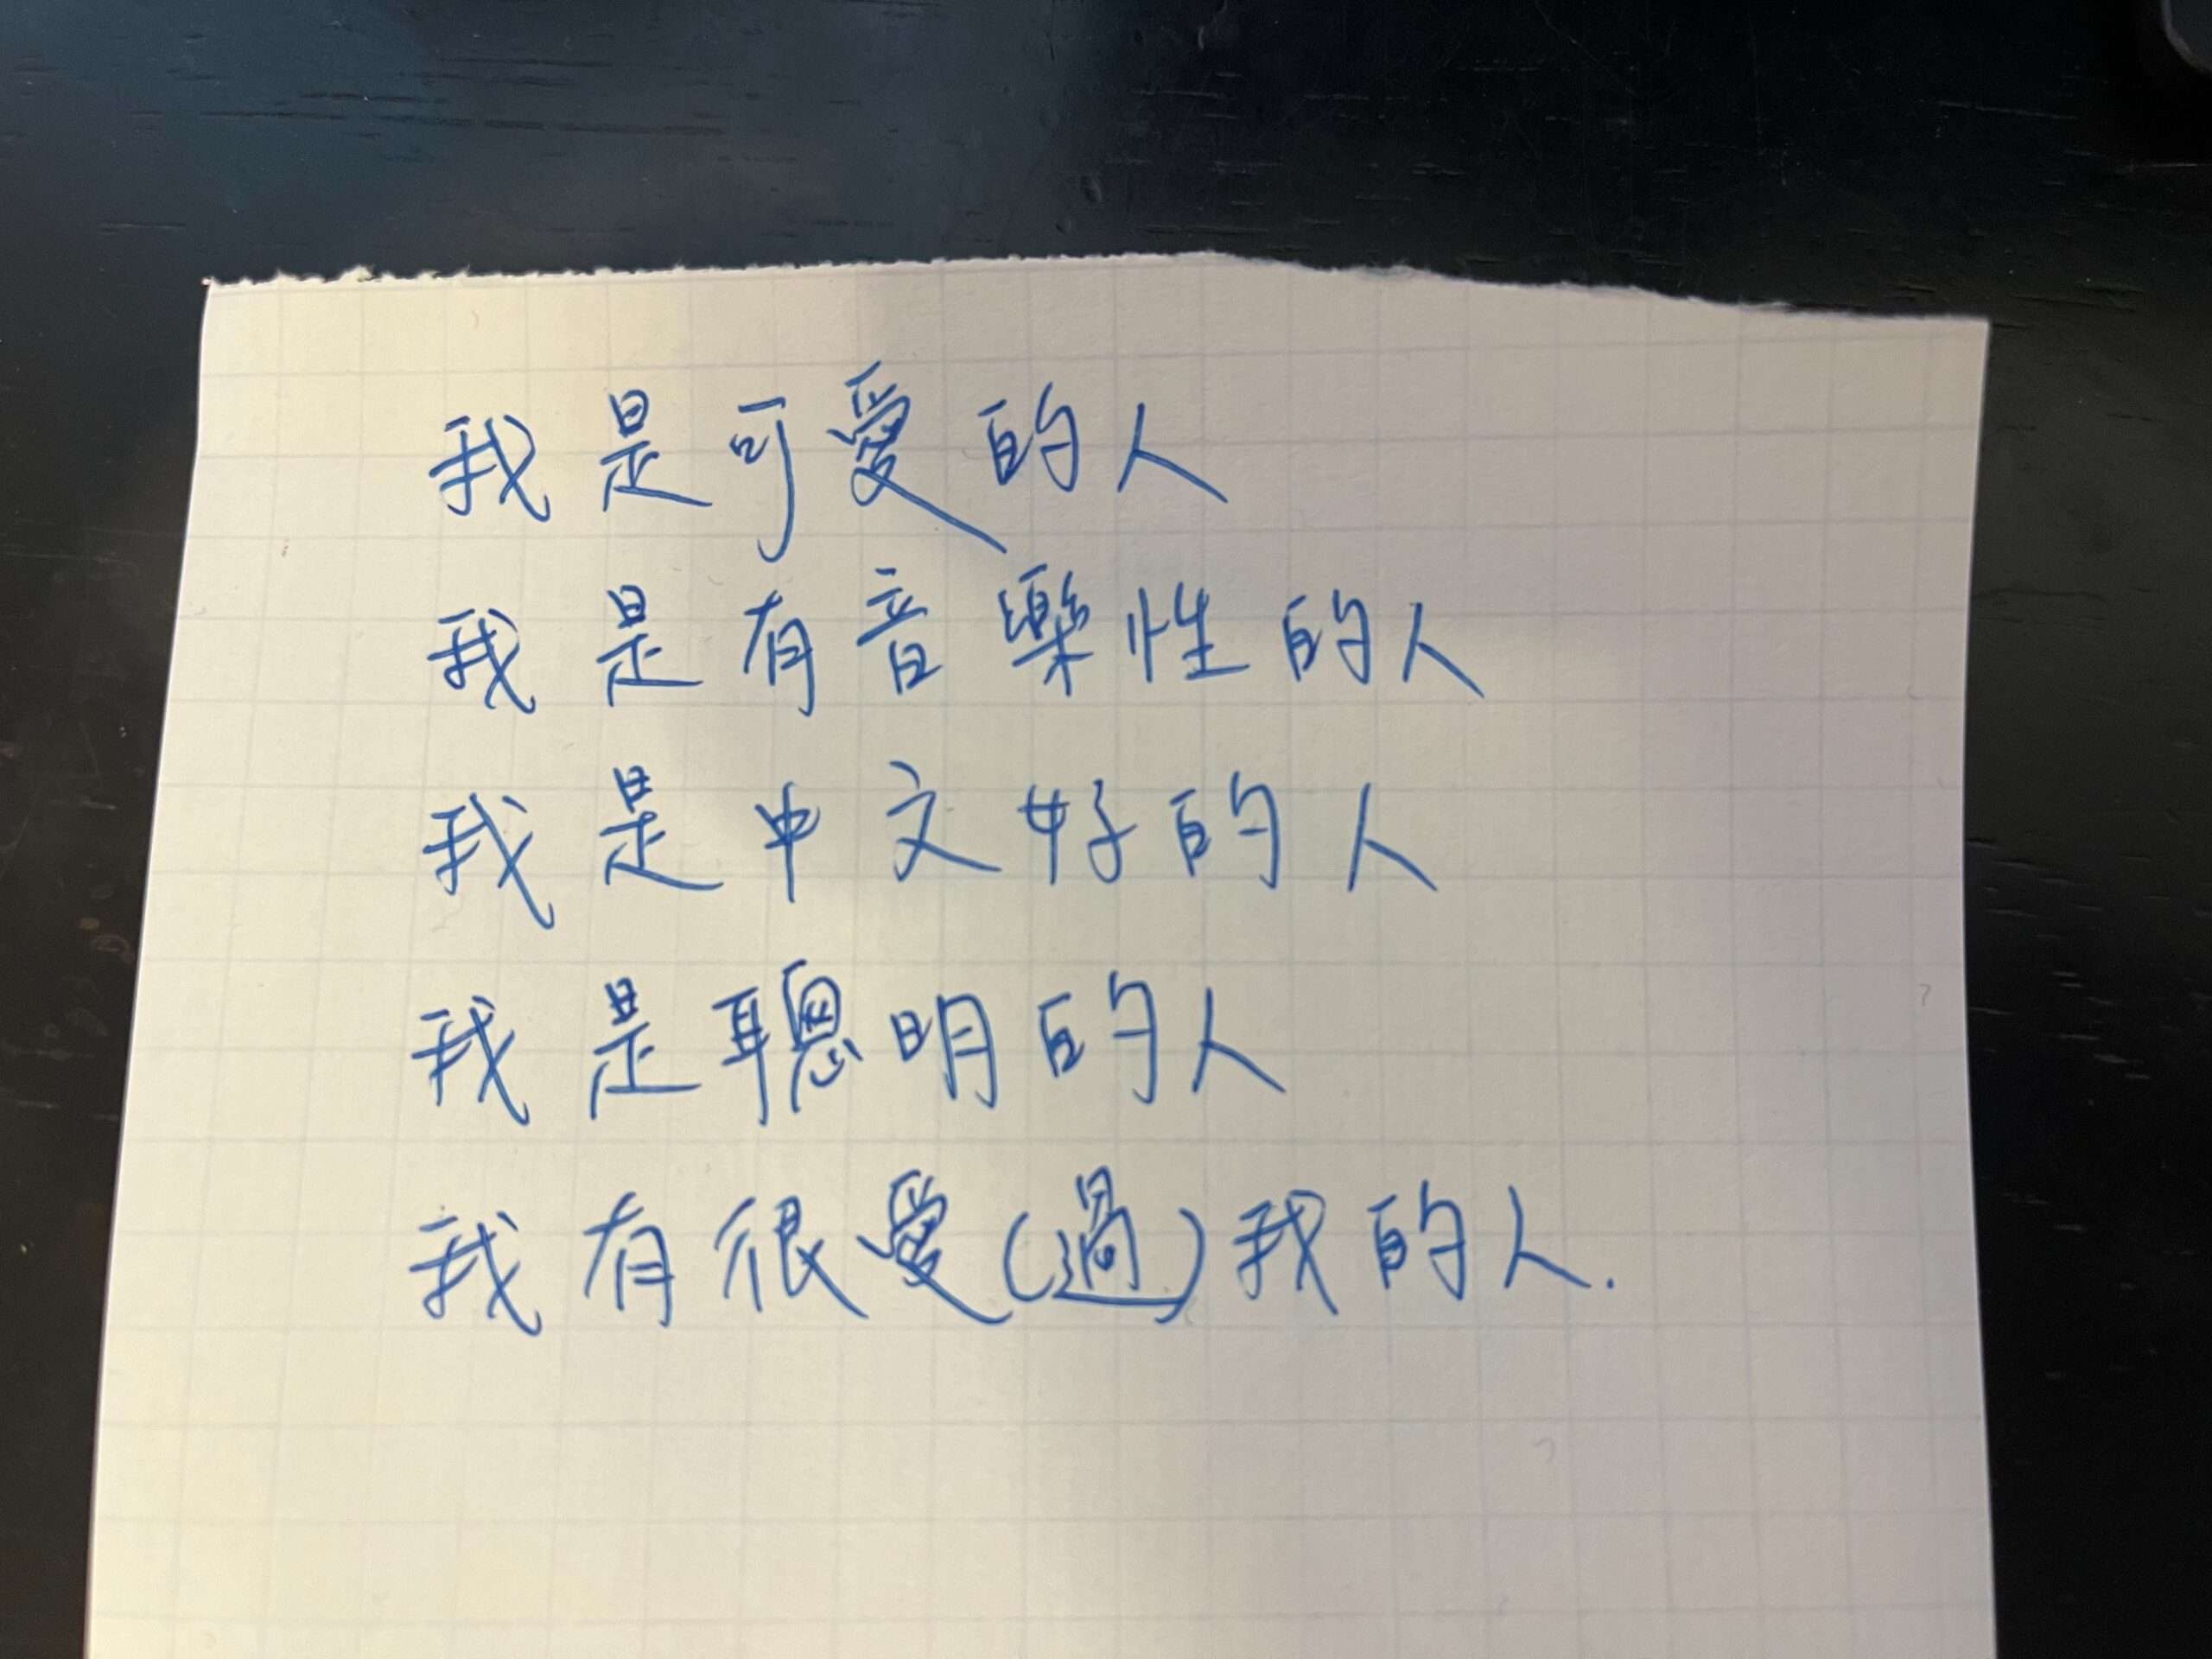 我是可愛的人
我是有音樂性的人
我是中文好的人
我是聰明的人
我有很愛(過)我的人.